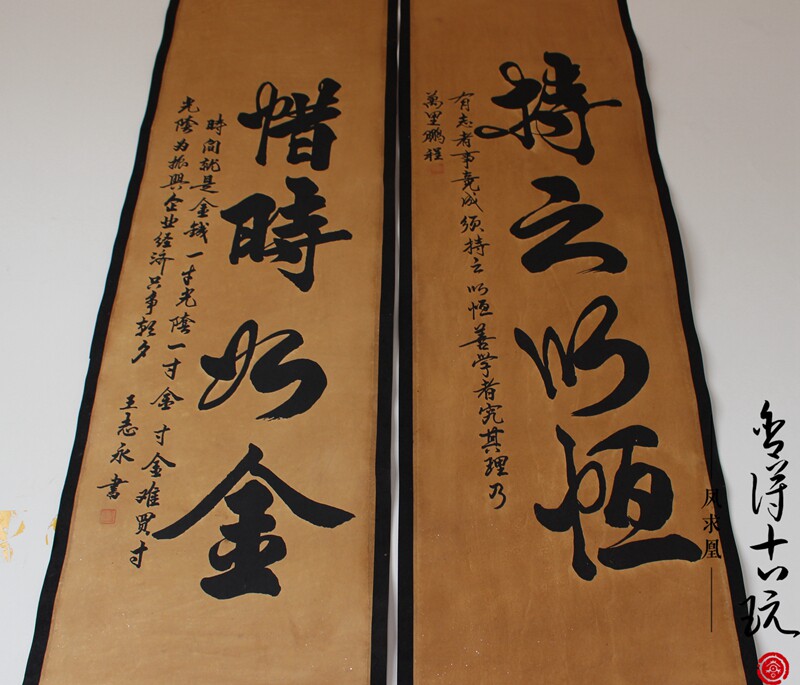 持之以恆
有志者事竟成须持之以恆善学者究其理乃
萬里鹏程
惜時如金
時间就是金钱一寸光陰一寸金寸金难買寸
光陰为振興企业经济只争朝夕
王志永書
凤求凰
十八玩